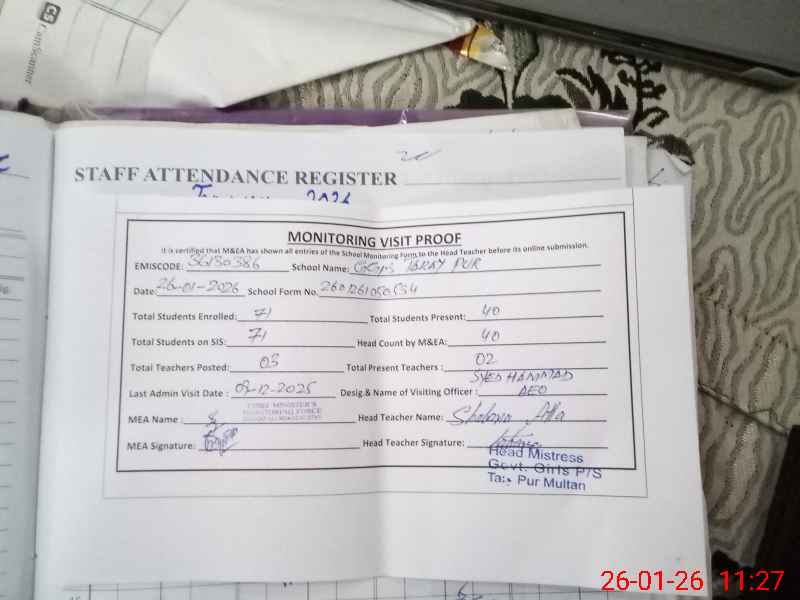 CS CamScanner
STAFF ATTENDANCE REGISTER
2026
MONITORING VISIT PROOF
It is certified that M&EA has shown all entries of the School Monitoring Form to the Head Teacher before its online submission.
EMISCODE: 36130386 School Name: GGPS TARAY PUR
Date: 26-01-2026 School Form No.
Total Students Enrolled: 71 Total Students Present: 40
Total Students on SIS: 71 Head Count by M&EA: 40
Total Teachers Posted: 05 Total Present Teachers : 02
SYED HAMMAD
Last Admin Visit Date : 09-12-2025 Desig.& Name of Visiting Officer : AEO
CHIEF MINISTER'S
MONITORING FORCE
MEA Name : Head Teacher Name:
MEA Signature: Head Teacher Signature:
Head Mistress
Govt. Girls P/S
Pur Multan
26-01-26 11:27